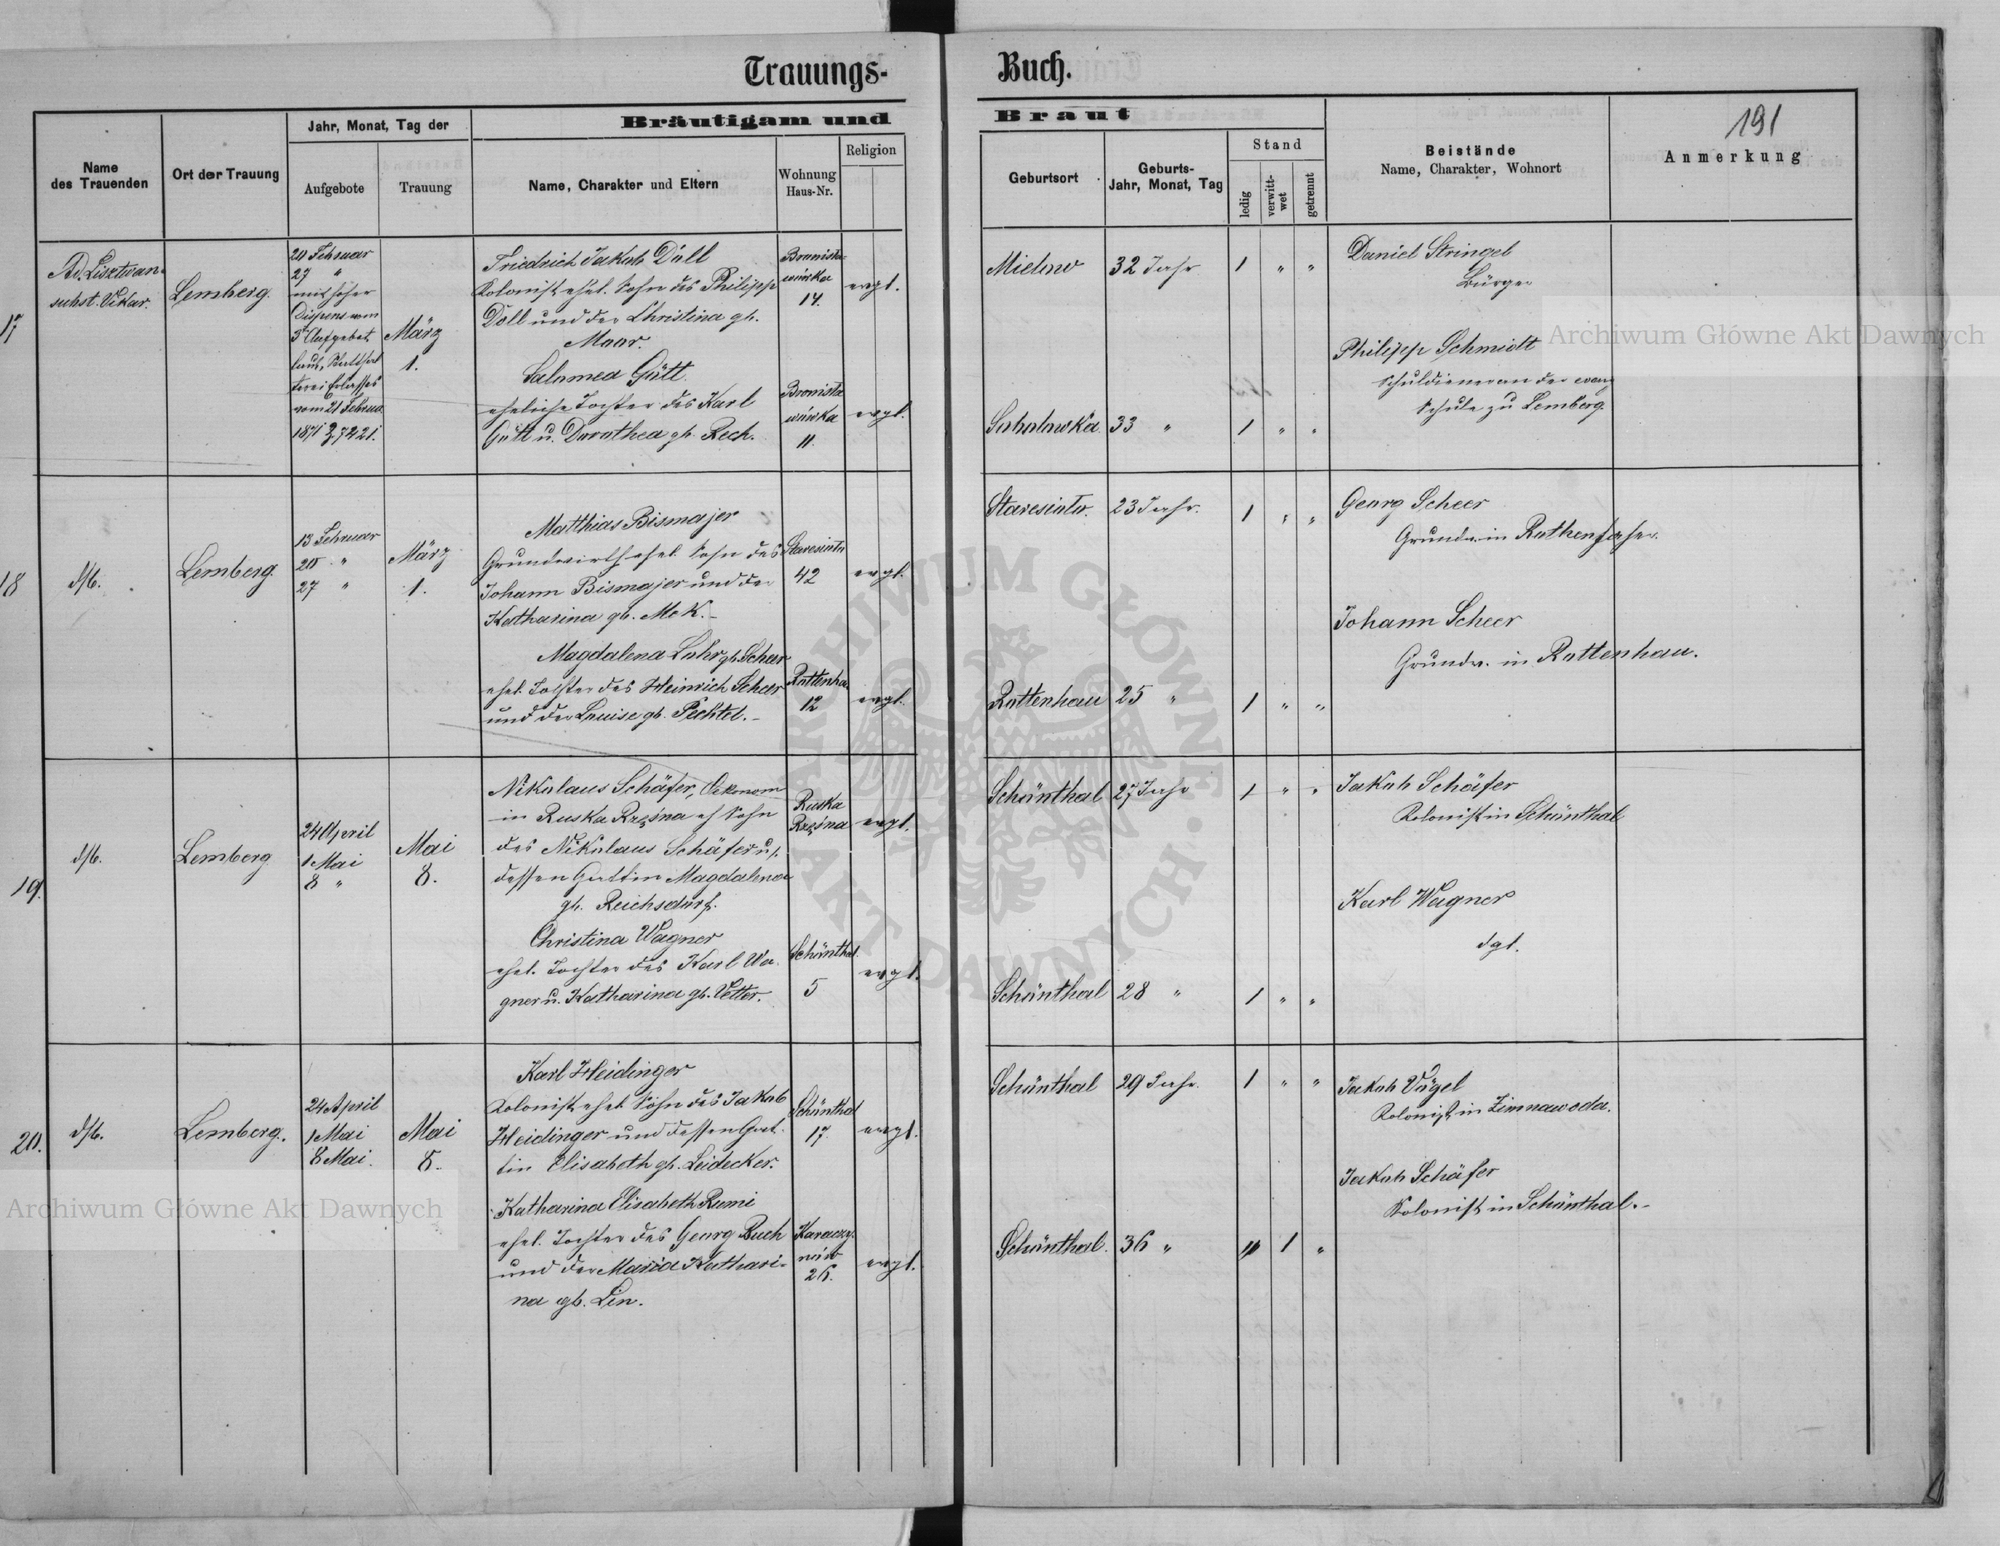 Trauungs-
Buch.
191
Name
des Trauenden
Ort der Trauung
Jahr, Monat, Tag der
Aufgebote
Trauung
Bräutigam und
Name, Charakter und Eltern
Wohnung
Haus-Nr.
Religion
Braut
Geburtsort
Geburts-
Jahr, Monat, Tag
Stand
ledig
verwitt-
wet
getrennt
Beistände
Name, Charakter, Wohnort
Anmerkung
17
Ad. Lisztwan
subst. Vikar.
Lemberg.
20 Februar
27 "
mit hoher
Dispens vom
3t Aufgebot
laut Statthal
terei Erlasses
vom 21 Februa
1871 Z. 7221.
März
1.
Friedrich Jakob Döll
Kolonist ehel. Sohn des Philipp
Döll und der Christina gb.
Salomea Gött.
eheliche Tochter des Karl
Gött u. Dorothea gb. Rech.
Bronisła
wówka
14.
evgl.
Bronisła
wówka
11.
evgl.
32 Jahr
1 " "
33 "
1 " "
Daniel Stringel
Bürger
Philipp Schmidt
Schuldiener an der evang
Schule zu Lemberg.
18
dto.
Lemberg.
13 Februar
20 "
27 "
März
1.
Matthias Bismajer
Grundwirth ehel. Sohn des
Johann Bismajer und der
Katharina gb. Mek.-
Magdalena Lohr gb. Scheer
ehel. Tochter des Heinrich Scheer
und der Louise gb. Pechtel.-
Staresioło
42
evgl.
Rottenha
12
evgl.
Staresioło.
23 Jahr.
1 " "
Rottenhau
25 "
1 " "
Georg Scheer
Grundw. in
Johann Scheer
Grundw. in Rottenhau.
19.
dto.
Lemberg
24 April
1 Mai
8 "
Mai
8.
Nikolaus Schäfer, Oekonom
in Ruska Rzęsna eh Sohn
des Nikolaus Schäfer u.
dessen Gattin Magdalena
gb. Reichsdorf.
Christina Wagner
ehel. Tochter des Karl Wa-
gner u. Katharina gb. Vetter.
Ruska
Rzęsna
evgl.
Schönthal.
5
evgl.
Schönthal
27 Jahr
1 " "
Schönthal
28 "
1 " "
Jakob Schäfer
Kolonist in Schönthal
Karl Wagner
dgl.
20.
dto.
Lemberg.
24 April
1 Mai
8 Mai.
Mai
8.
Karl Heidinger
Kolonist ehel. Sohn des Jakob
Heidinger und dessen Gat-
tin Elisabeth gb. Leidecker.
Katharina Elisabeth Rumi
ehel. Tochter des Georg Buch
und der Maria Kathari-
na gb. Lin.
Schönthal
17.
evgl.
Karaczy-
nów
26.
evgl.
Schönthal
29 Jahr.
1 " "
Schönthal.
36 "
" 1 "
Jakob Vögel
Kolonist in Zimnawoda.
Jakob Schäfer
Kolonist in Schönthal.-
Archiwum Główne Akt Dawnych
Archiwum Główne Akt Dawnych
ARCHIWUM GŁÓWNE AKT DAWNYCH